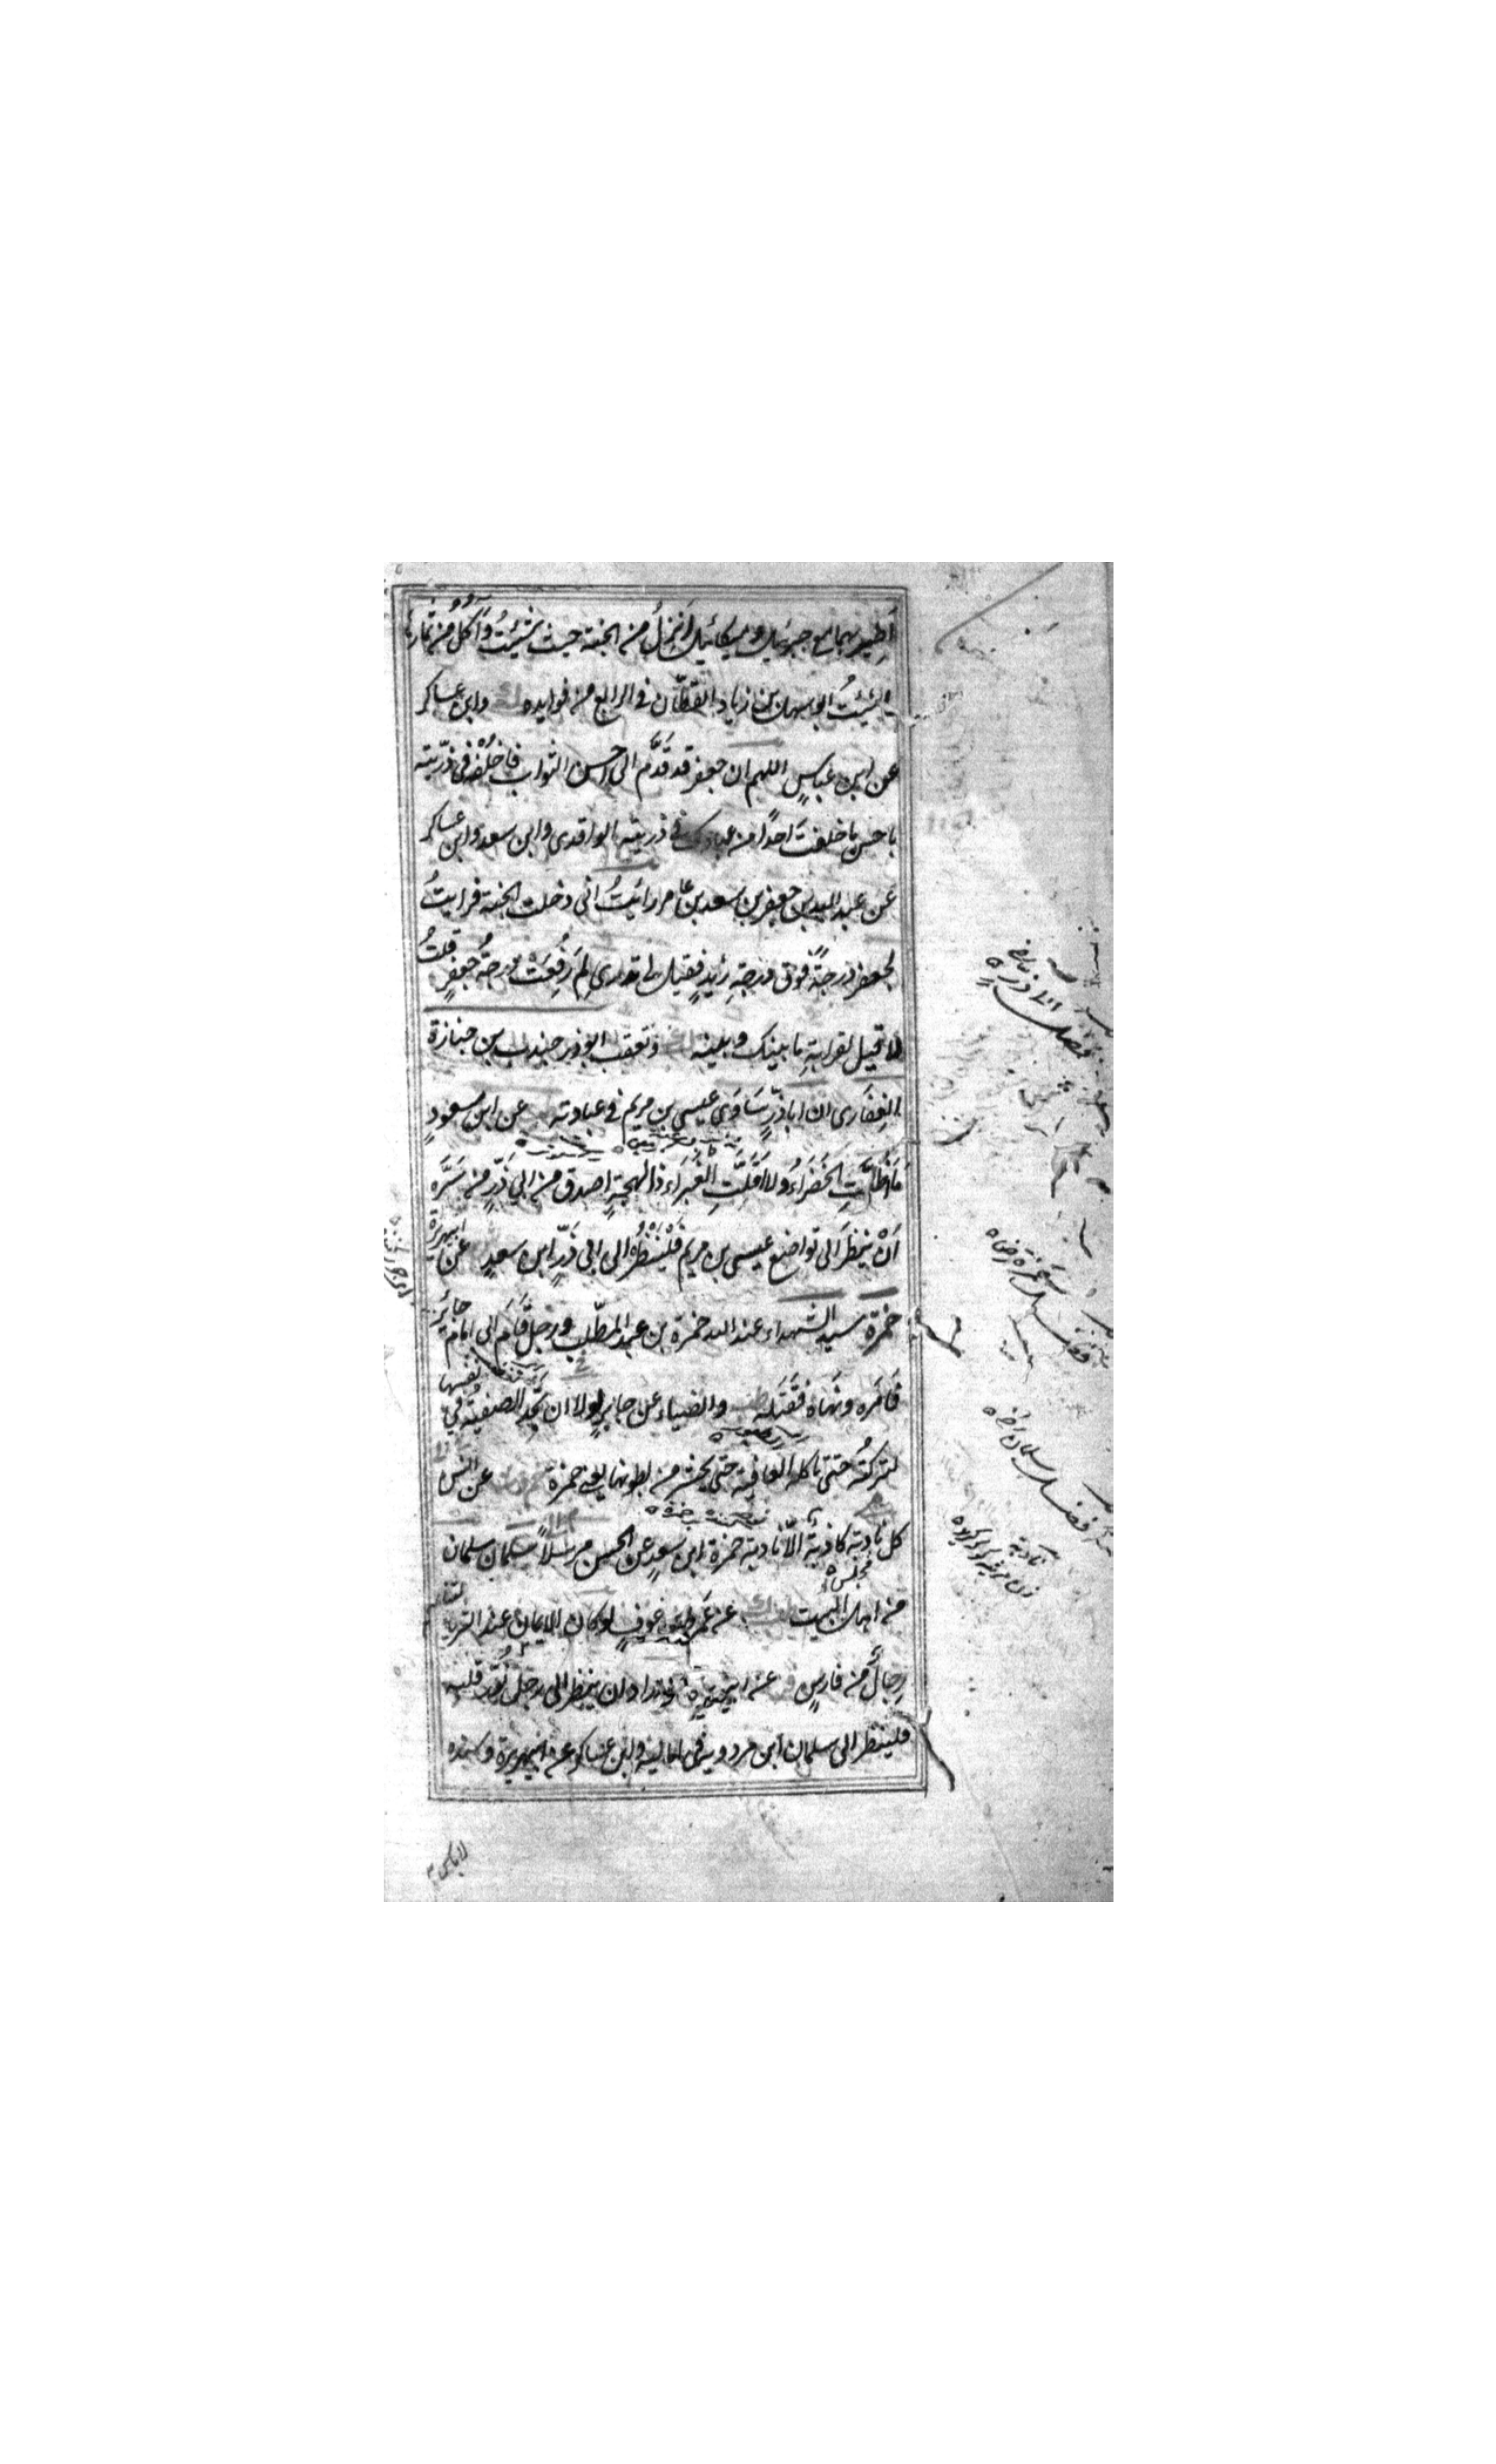 أطير بهما مع جبرئيل وميكائيل أنزل من الجنة حيث شئت وآكل من ثمارها
شئت ابو سهل بن زياد القطان في الرابع من فوايده ك وابن عساكر
عن ابن عباس اللهم ان جعفر قد قدم الى احسن الثواب فاخلفه في ذريته
باحسن ما خلفت احدا من عبادك في ذريته الواقدى وابن سعد وابن عساكر
عن عبد الله بن جعفر بن سعد بن عامر رايت انى دخلت الجنة فرايت
لجعفر درجة فوق درجة زيد فقيل لى تدرى لم رفعت درجة جعفر قلت
لا قيل لقرابة ما بينك وبينه ك وتعقب ابو ذر جندب بن جنازة
الغفارى ان ابا ذر ساوى عيسى بن مريم في عبادته عن ابن مسعود
ما أظلت الخضراء ولا أقلت الغبراء ذا لهجة اصدق من ابي ذر من سره
أن ينظر الى تواضع عيسى بن مريم فلينظر الى ابي ذر ابن سعد عن ابيهريرة
حمزة سيد الشهداء عند الله حمزة بن عبد المطلب ورجل قام الى امام جائر
فأمره ونهاه فقتله والضياء عن جابر لولا ان تجد الصفية في نفسها
لتركته حتى تاكله العافية حتى يحشر من بطونها يعنى حمزة عن انس
كل نادبة كاذبة الا نادبة حمزة ابن سعد عن الحسن مرسلا سلمان سلمان
من اهل البيت ك عن عمرو بن عوف لو كان الايمان عند الثريا لتناله
رجال من فارس عن ابيهريرة من اراد ان ينظر الى رجل نور قلبه
فلينظر الى سلمان ابن مردويه في اماليه وابن عساكر عن ابيهريرة وسنده
فضل ابى ذر
فضل حمزة رض
فضل سلمان رض
لا باس